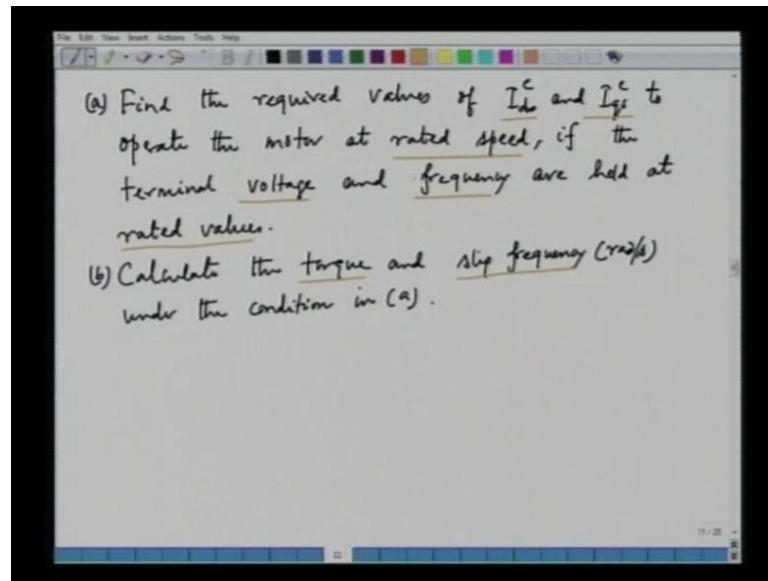 File Edit View Insert Actions Tools Help
(a) Find the required values of I_ds^c and I_qs^c to
operate the motor at rated speed, if the
terminal voltage and frequency are held at
rated values.
(b) Calculate the torque and slip frequency (rad/s)
under the condition in (a).
11/25